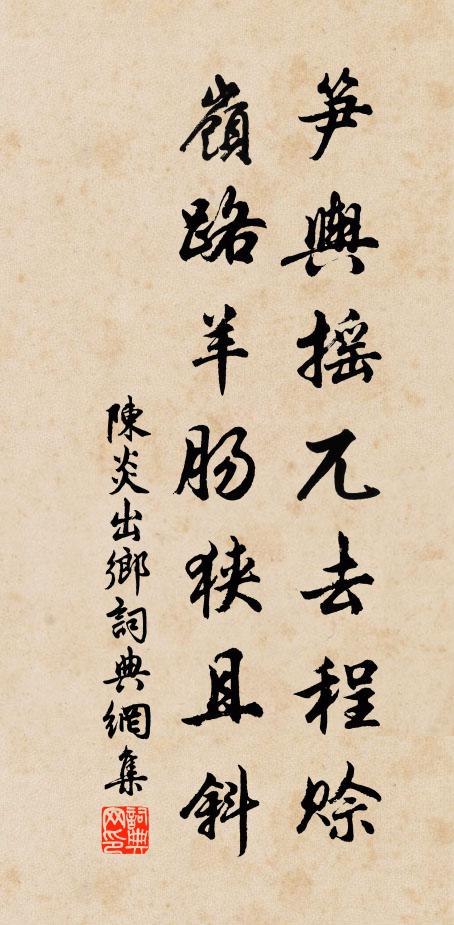 笋輿摇兀去程赊
嶺路羊肠狹且斜
陳炎出鄉詞典網集
詞典网印